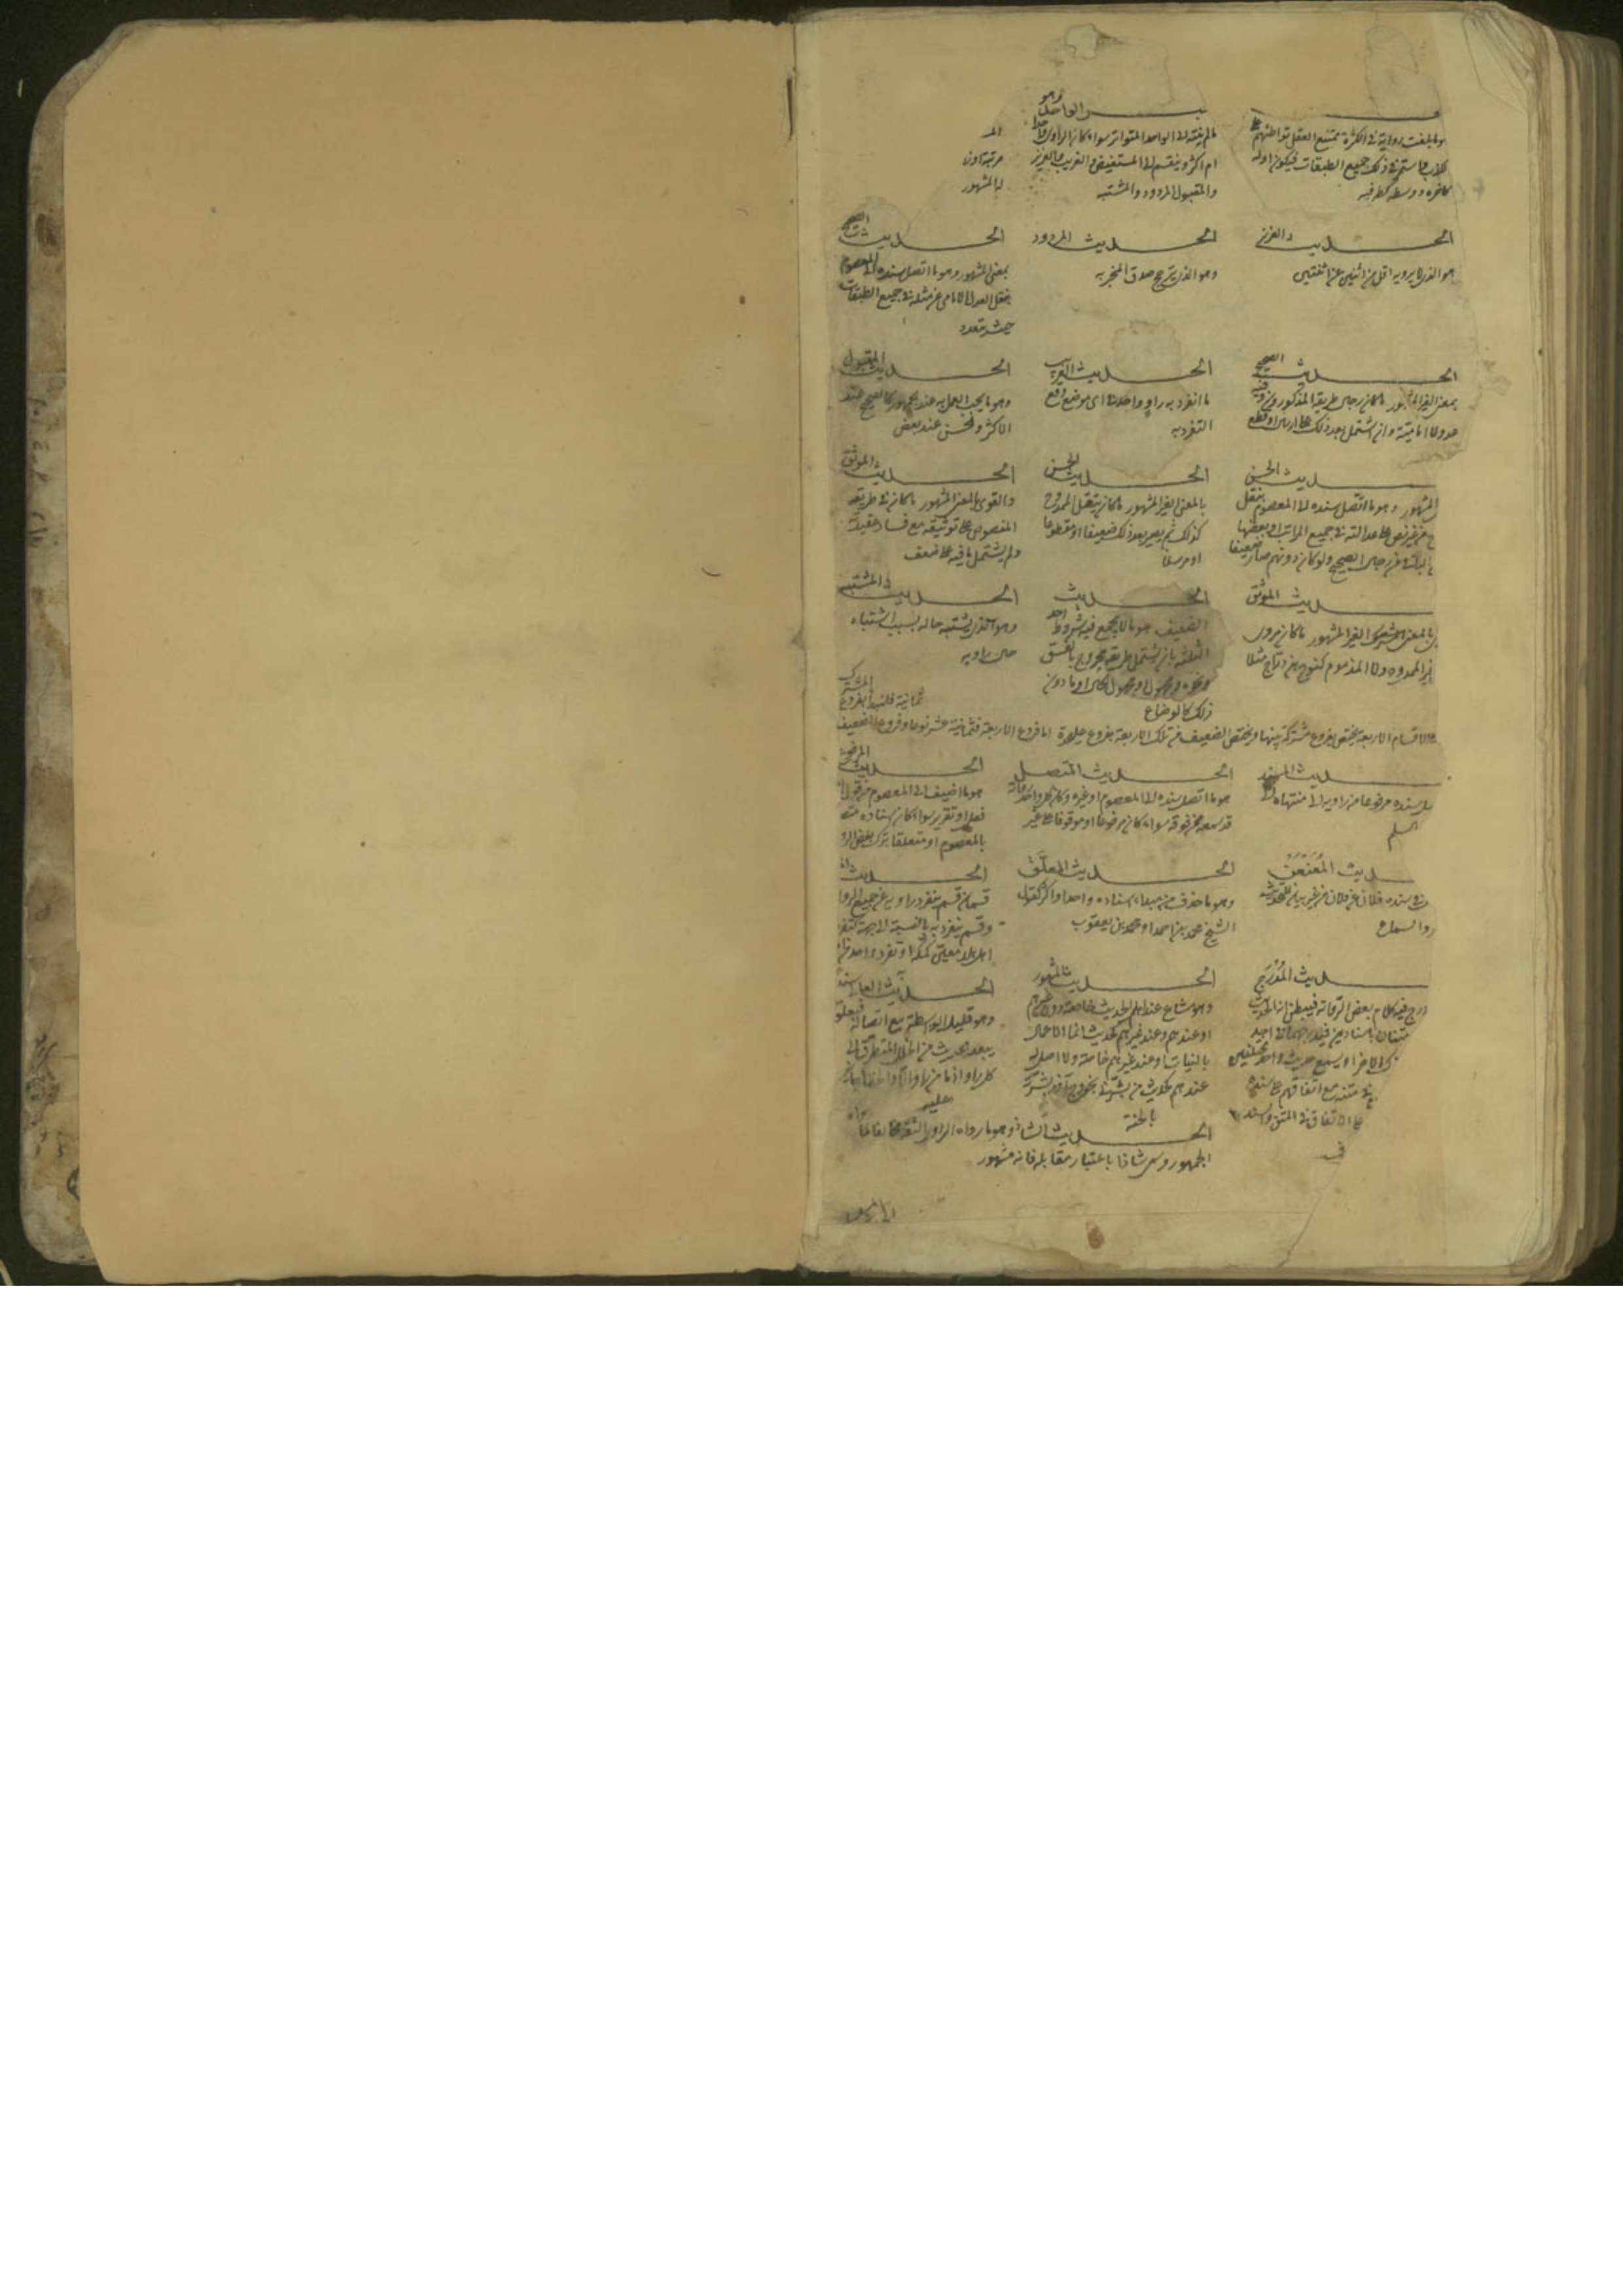 وهو
ـبر الواحد
ما بلغت رواية في الكثرة تمتنع العقل تواطئهم على
الكذب واستمر ذلك في جميع الطبقات فيكون اوله
كاخره ووسطه كطرفيه
ما لم ينته الى الواحد المتواتر سواء كان الراوى واحدا
ام اكثر وينقسم الى المستفيض والغريب والعزيز
والمقبول المردود والمشتبه
مرتبة اون
له المشهور
الحديث العزيز
هو الذي لا يرويه اقل من اثنين عن اثنين
الحديث المردود
وهو الذي يترجح صدق المخبر به
الحديث الصحيح
بمعنى المشهور وهو ما اتصل سنده الى المعصوم
بنقل العدل الامامى عن مثله في جميع الطبقات
حيث تتعدد
الحديث الصحيح
بمعنى الغير المشهور ما كان رجال طريقه المذكورون فيه
عدولا امامية وان اشتمل بعد ذلك على ارسال او قطع
الحديث الغريب
ما انفرد به راو واحد في اى موضع وقع
التفرد به
الحديث المقبول
وهو ما يجب العمل به عند الجمهور كالصحيح عند
الاكثر والحسن عند بعض
ـديث الحسن
المشهور وهو ما اتصل سنده الى المعصوم بنقل
من غير نص على عدالته في جميع المراتب او بعضها
الباقى من رجال الصحيح ولو كان دونهم صار ضعيفا
الحديث الحسن
بالمعنى الغير المشهور ما كان بنقل الممدوح
كذلك ثم يصير بعد ذلك ضعيفا او مقطوعا
او مرسلا
الحديث الموثق
والقوى بالمعنى المشهور ما كان في طريقه
المنصوص على توثيقه مع فساد عقيدته
ولم يشتمل باقيه على ضعف
ـديث الموثق
بالمعنى المشترك الغير المشهور ما كان مروى
غير الممدوح ولا المذموم كنوح بن دراج مثلا
الحديث
الضعيف هو ما لا يجمع فيه شروط احد
الثلثة بان يشتمل طريقه مجروح بالفسق
ونحوه او مجهول الحال او ما دون
ذلك كالوضاع
الحديث المشتبه
وهو الذي يشتبه حاله بسبب اشتباه
حال راويه
المشترك
ثمانية فلنبدأ بفروع
الاقسام الاربعة يختص بفروع مشتركة بينها ويختص الضعيف من تلك الاربعة بفروع عليحدة اما فروع الاربعة فثمانية عشر نوعا وفروع الضعيف
ـديث المسند
سنده مرفوعا من راويه الى منتهاه الى
الحديث المتصل
هو ما اتصل سنده الى المعصوم او غيره وكان كل واحد من رواته
قد سمعه ممن فوقه سواء كان مرفوعا او موقوفا على غير
الحديث المرفوع
هو ما اضيف الى المعصوم من قول او
فعل او تقرير سواء كان اسناده متصلا
بالمعصوم او متعلقا بترك بعض الر
ـديث المُعَنعَن
في سنده فلان عن فلان من غير بيان للتحديث
والسماع
الحديث المعلَّق
وهو ما حذف من مبداء اسناده واحد او اكثر كقول
الشيخ محمد بن احمد او محمد بن يعقوب
الحديث
قسمان قسم ينفرد راويه عن جميع الروا
وقسم ينفرد به بالنسبة الى جهة كتفرد
اهل بلد معين كمكة او تفرد واحد من
ـديث المُدْرَج
درج فيه كلام بعض الرواة فيظن انه الحديث
متنان باسنادين فيدرجهما في احد
الاخر او يسمع حديث واحد مختلفين
في متنه مع اتفاقهم على سنده
على الاتفاق في المتن والسند
الحديث المشهور
وهو ما شاع عند اهل الحديث خاصة دون غيرهم
او عندهم وعند غيرهم كحديث انما الاعمال
بالنيات او عند غيرهم خاصة ولا اصل له
عندهم كحديث من بشرنى بخروج آذر بشرته
بالجنة
الحديث العالى سندا
وهو قليل الواسطة مع اتصاله فبعلو
يبعد الحديث من الخلل المتطرق الى
كل راو اذ ما من راو الا والخطأ جائز
عليه
الحديث الشاذ وهو ما رواه الراوى الثقة مخالفا لما رواه
الجمهور وسمى شاذا باعتبار مقابله فانه مشهور